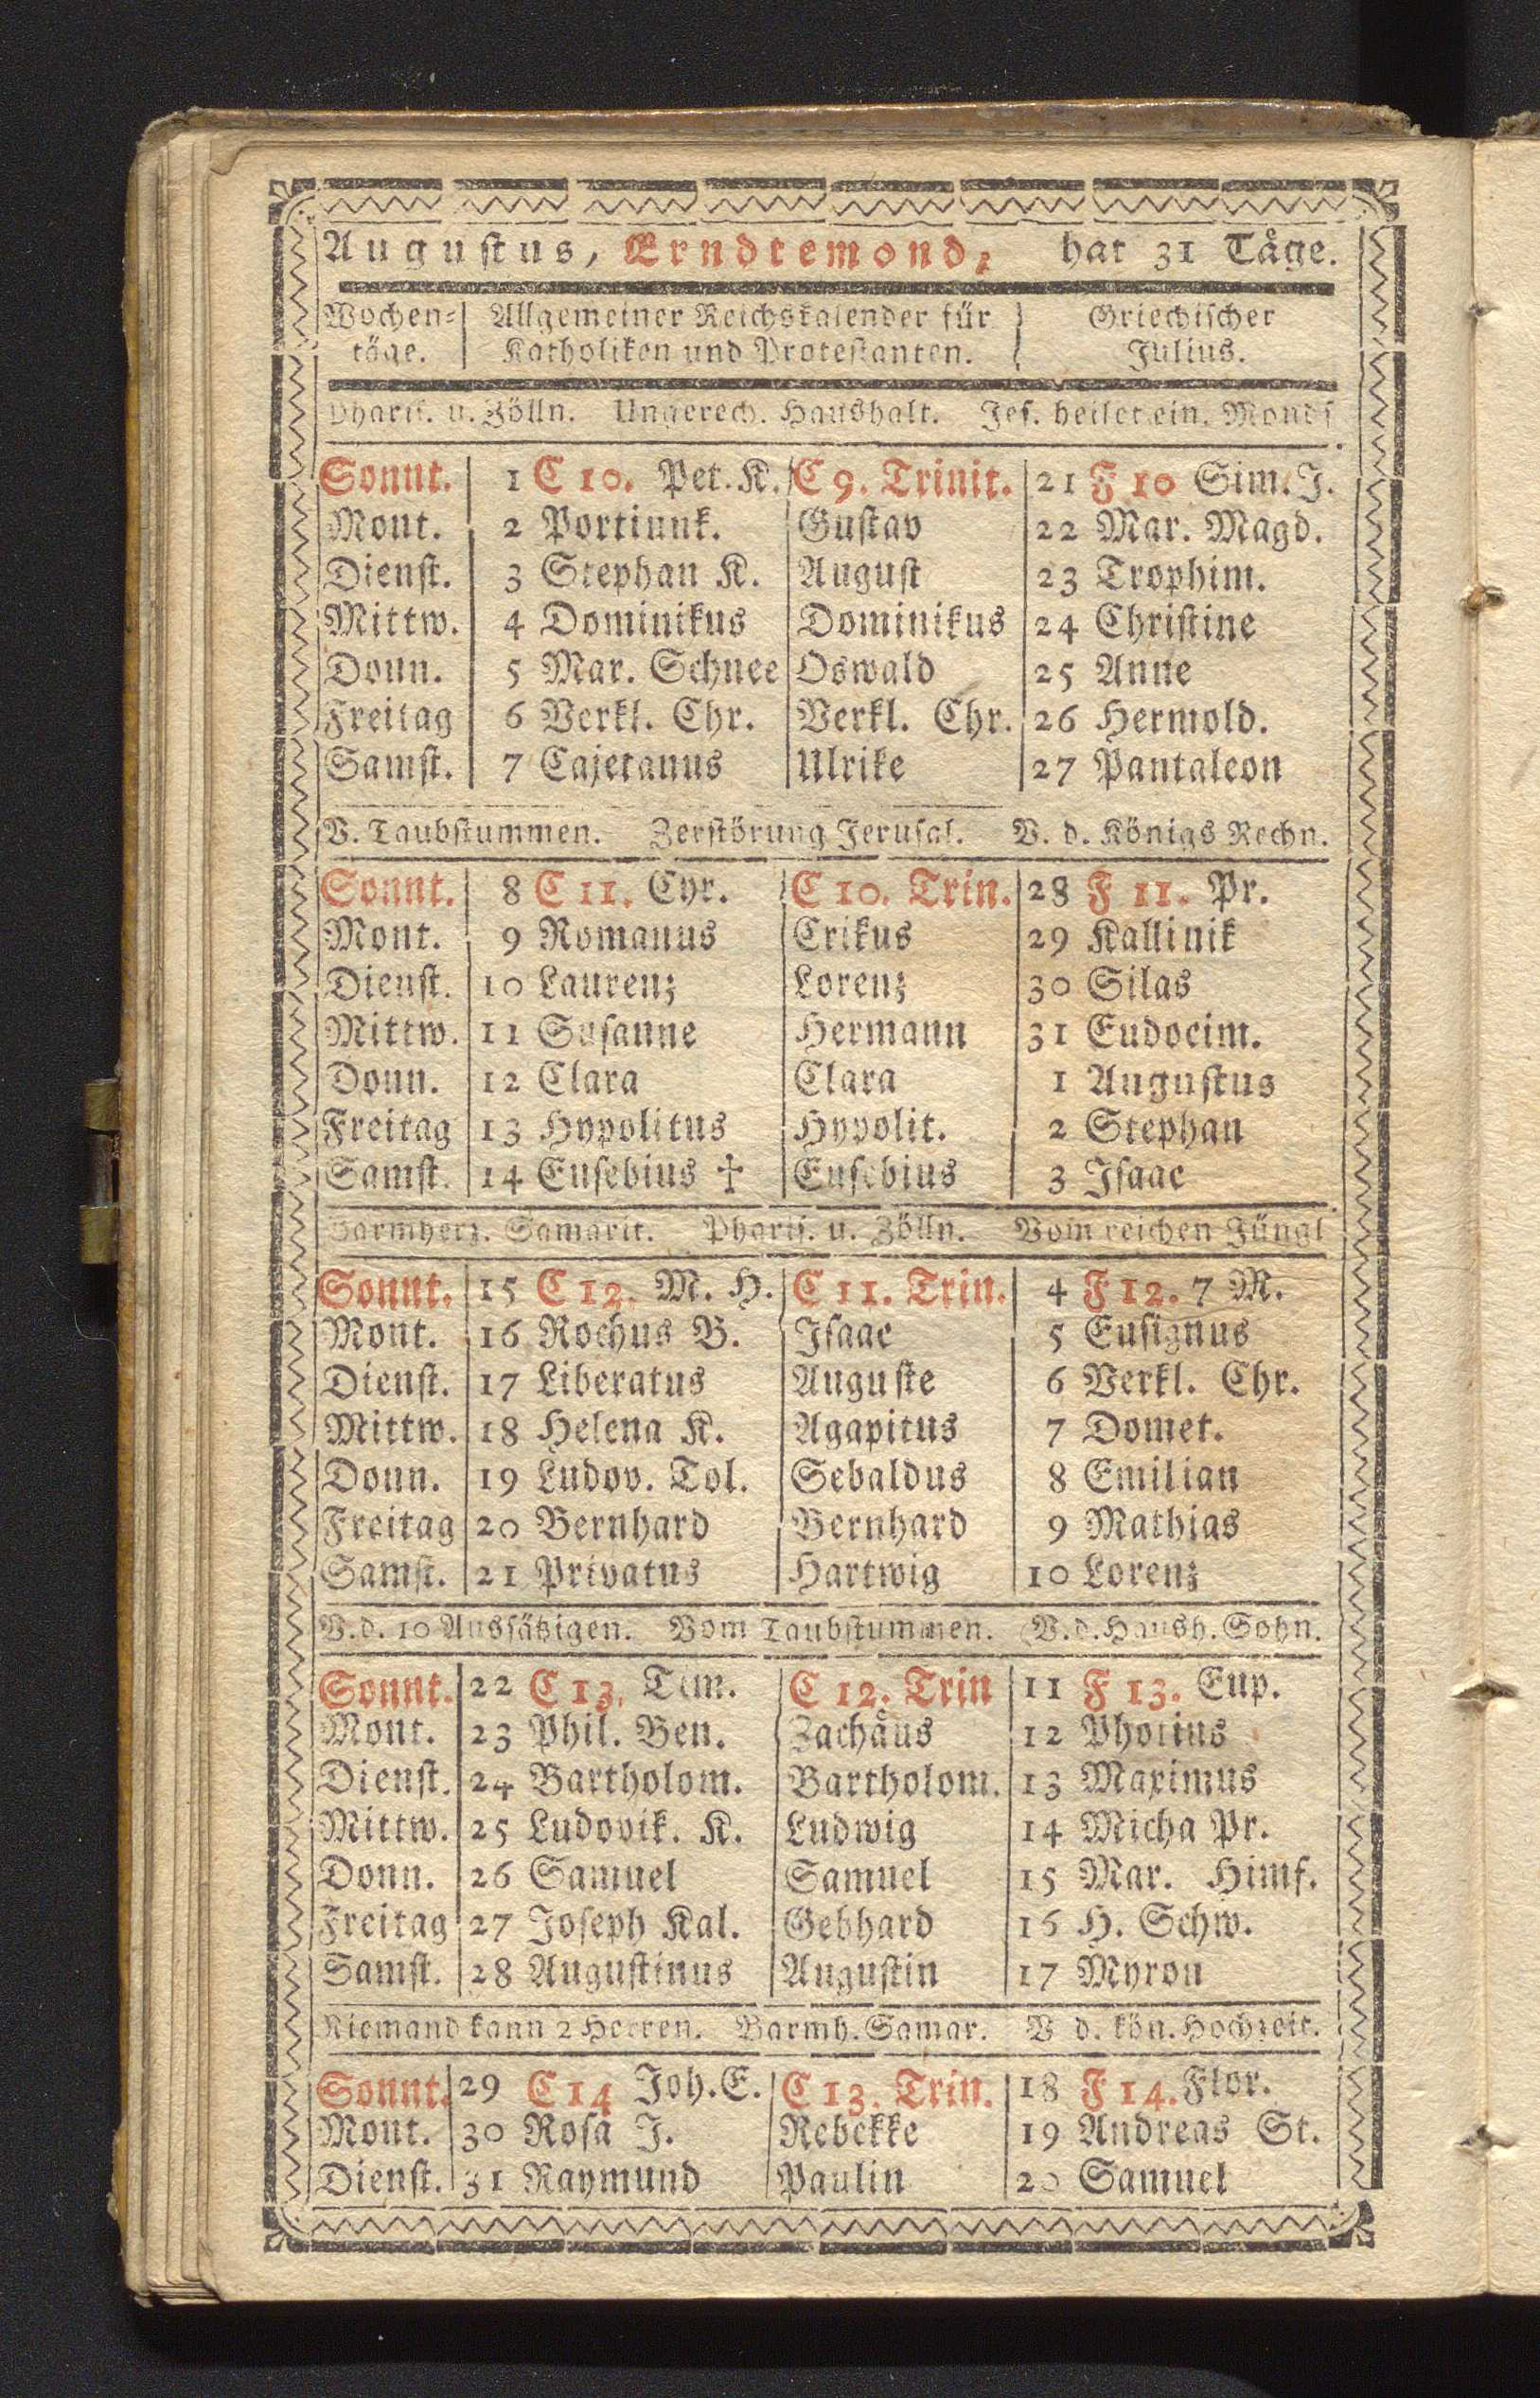 Augustus, Erndtemond, hat 31 Täge.
Wochen= Allgemeiner Reichskalender für Griechischer
täge. Katholiken und Protestanten. Julius.
Pharis. u. Zölln. Ungerech. Haushalt. Jes. heilet ein. Monds
Sonnt. 1 C 10. Pet. K. C 9. Trinit. 21 F 10 Sim. J.
Mont. 2 Portiunk. Gustav 22 Mar. Magd.
Dienst. 3 Stephan K. August 23 Trophim.
Mittw. 4 Dominikus Dominikus 24 Christine
Donn. 5 Mar. Schnee Oswald 25 Anne
Freitag 6 Verkl. Chr. Verkl. Chr. 26 Hermold.
Samst. 7 Cajetanus Ulrike 27 Pantaleon
V. Taubstummen. Zerstörung Jerusal. V. d. Königs Rechn.
Sonnt. 8 C 11. Cyr. C 10. Trin. 28 F 11. Pr.
Mont. 9 Romanus Erikus 29 Kallinik
Dienst. 10 Laurenz Lorenz 30 Silas
Mittw. 11 Susanne Hermann 31 Eudocim.
Donn. 12 Clara Clara 1 Augustus
Freitag 13 Hypolitus Hypolit. 2 Stephan
Samst. 14 Eusebius ✝ Eusebius 3 Isaac
Barmherz. Samarit. Pharis. u. Zölln. Vom reichen Jüngl
Sonnt. 15 C 12. M. H. C 11. Trin. 4 F 12. 7 M.
Mont. 16 Rochus B. Isaac 5 Eusignus
Dienst. 17 Liberatus Auguste 6 Verkl. Chr.
Mittw. 18 Helena K. Agapitus 7 Domet.
Donn. 19 Ludov. Tol. Sebaldus 8 Emilian
Freitag 20 Bernhard Bernhard 9 Mathias
Samst. 21 Privatus Hartwig 10 Lorenz
V. d. 10 Aussätzigen. Vom Taubstummen. V. d. Haush. Sohn.
Sonnt. 22 C 13. Tim. C 12. Trin 11 F 13. Eup.
Mont. 23 Phil. Ben. Zachäus 12 Photius
Dienst. 24 Bartholom. Bartholom. 13 Maximus
Mittw. 25 Ludovik. K. Ludwig 14 Micha Pr.
Donn. 26 Samuel Samuel 15 Mar. Himf.
Freitag 27 Joseph Kal. Gebhard 16 H. Schw.
Samst. 28 Augustinus Augustin 17 Myron
Niemand kann 2 Herren. Barmh. Samar. V d. kön. Hochzeit.
Sonnt. 29 C 14 Joh. E. C 13. Trin. 18 F 14. Flor.
Mont. 30 Rosa J. Rebekke 19 Andreas St.
Dienst. 31 Raymund Paulin 20 Samuel